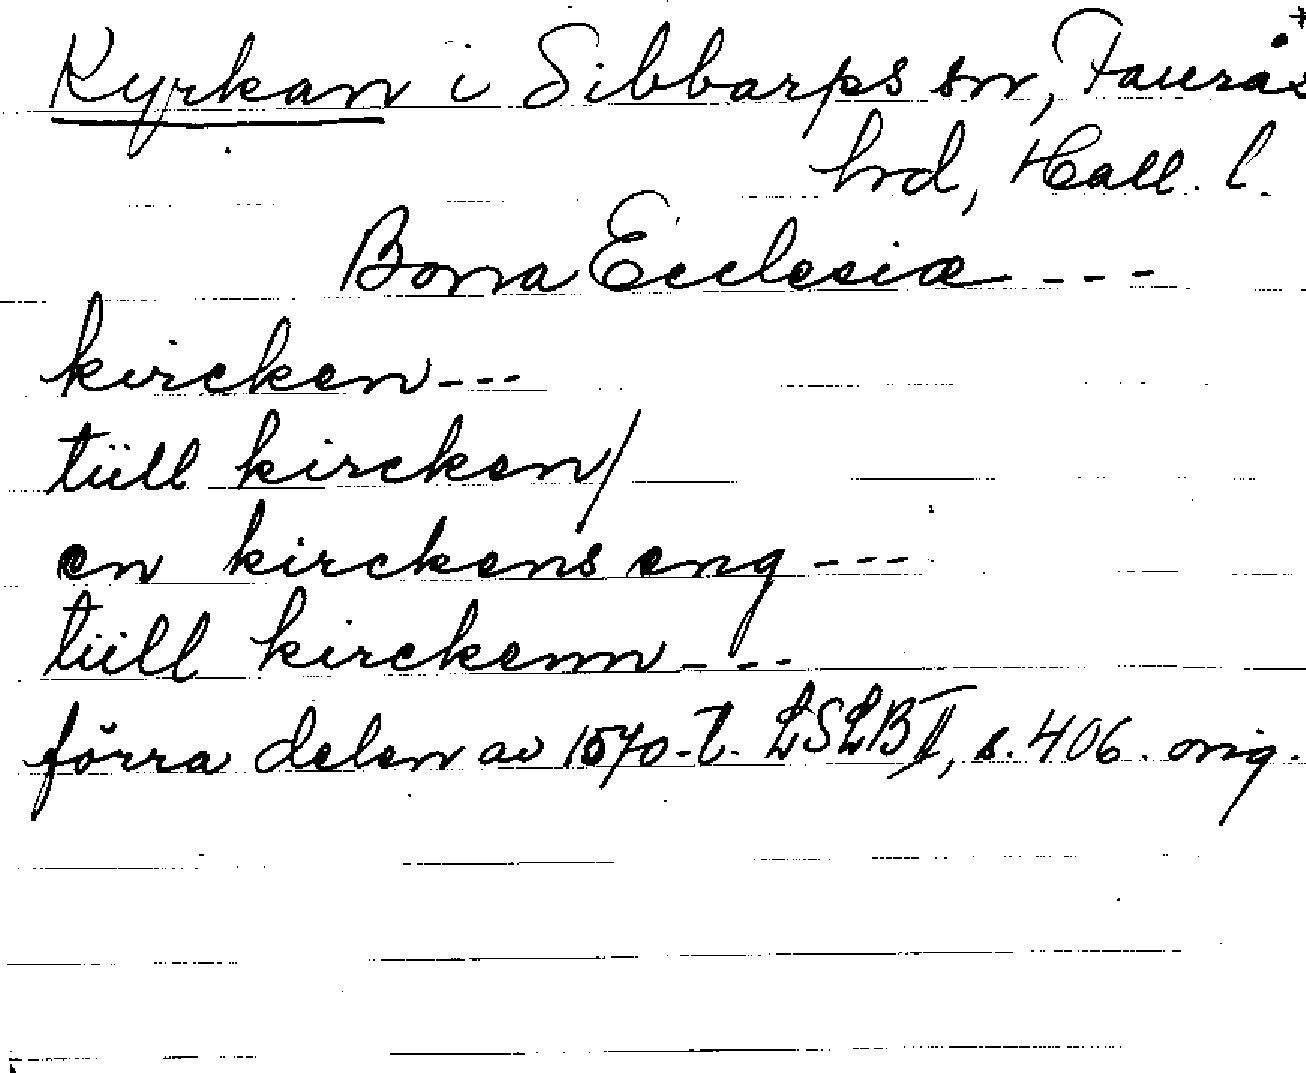 Kyrkan i Sibbarps sn, Faurås
hrd, Hall. l.
Bona Ecclesiæ ---
kircken ---
tiill kircken/
en kirckens eng ---
tiill kirckenn ---
förra delen av 1570-t. LSLB II, s. 406. orig.